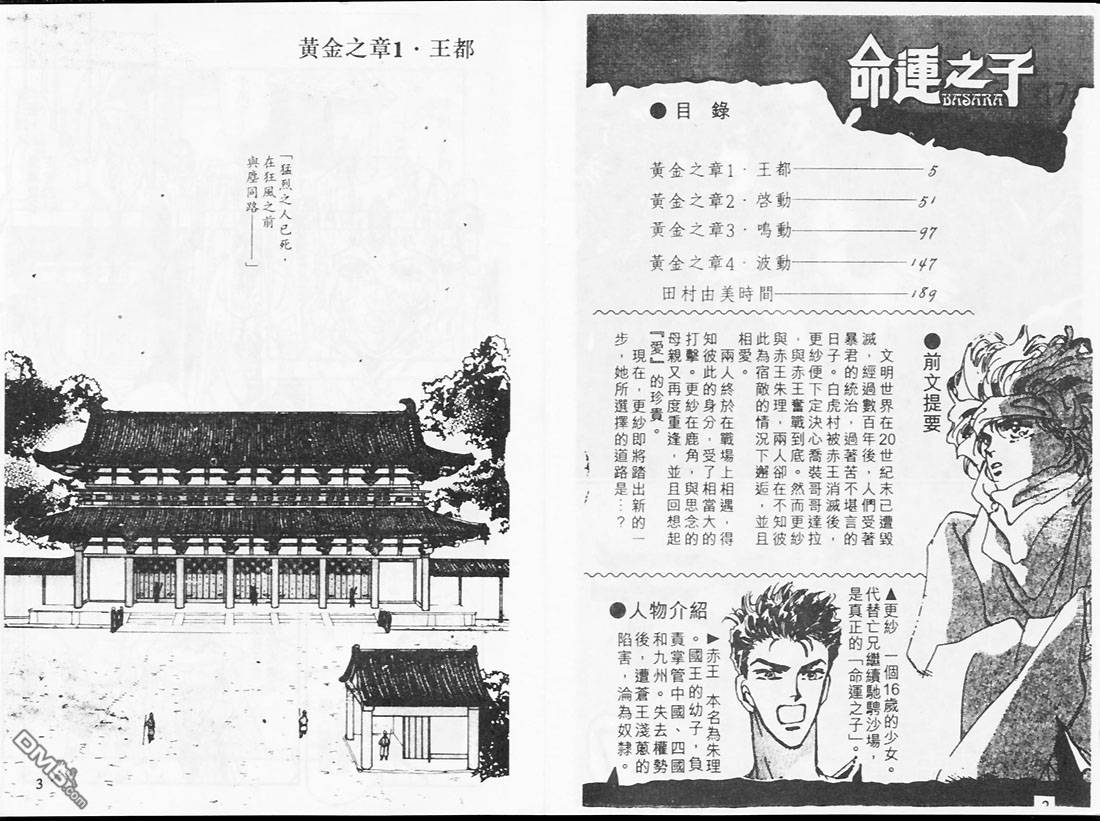 命運之子
BASARA
7
●目錄
黃金之章1·王都 5
黃金之章2·啓動 51
黃金之章3·鳴動 97
黃金之章4·波動 147
田村由美時間 189
●前文提要
文明世界在20世紀末已遭毀
滅，經過數百年後，人們受著
暴君的統治，過著苦不堪言的
日子。白虎村被赤王消滅後，
更紗便下定決心喬裝哥哥達拉
，與赤王奮戰到底。然而更紗
與赤王朱理，兩人卻在不知彼
此為宿敵的情況下邂逅，並且
相愛。
兩人終於在戰場上相遇，得
知彼此的身分，受了相當大的
打擊。更紗在鹿角，與思念的
母親又再度重逢，並且回想起
『愛』的珍貴。
現在，更紗即將踏出新的一
步，她所選擇的道路是…？
▲更紗 一個16歲的少女。
代替亡兄繼續馳騁沙場，
是真正的「命運之子」。
●人物介紹
▶赤王 本名為朱理
。國王的幼子，負
責掌管中國、四國
和九州。失去權勢
後，遭蒼王淺蔥的
陷害，淪為奴隸。
2
黃金之章1·王都
「猛烈之人已死，
在狂風之前
與塵同路——」
DM5.com
3